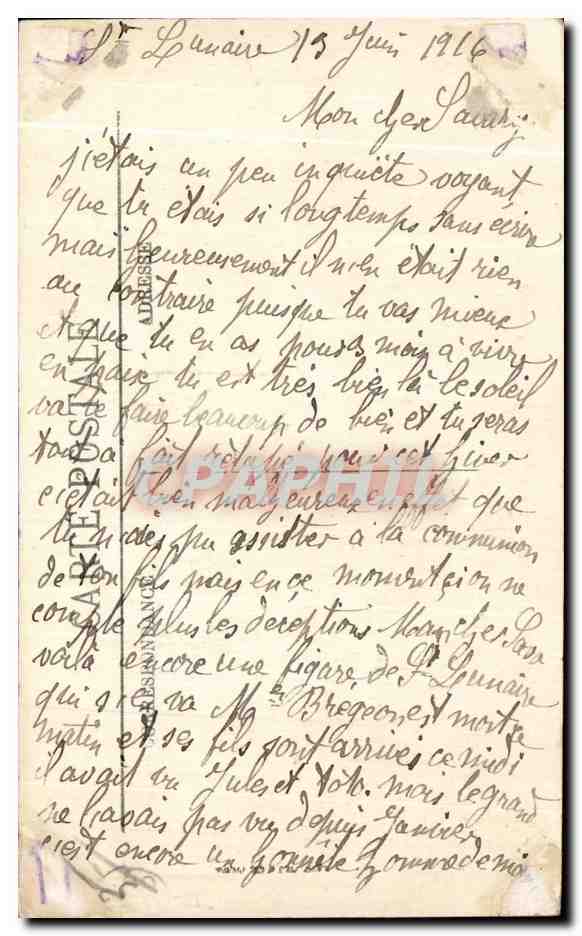 St Lunaire 13 Juin 1916
Mon cher
j'étais un peu inquiète voyant
que tu étais si longtemps sans écrire
mais heureusement il n'en était rien
au contraire puisque tu vas mieux
et que tu en as pour 3 mois à vivre
en paix tu est très bien là le soleil
va te faire beaucoup de bien et tu seras
tout à fait rétabli pour cet hiver
c'était bien malheureux en effet que
tu n'aies pu assister à la communion
de ton fils mais en ce moment çi on ne
compte plus les déceptions Mon cher
voilà encore une figure de St Lunaire
qui s'en va Mr Brégeon est mort ce
matin et ses fils sont arrivés ce midi
il avait vu Jules et tôto mais le grand
ne l'avais pas vu depuis Janvier
c'est encore un honnête homme de moins
CARTE POSTALE
CORRESPONDANCE
ADRESSE
CPAPHIL